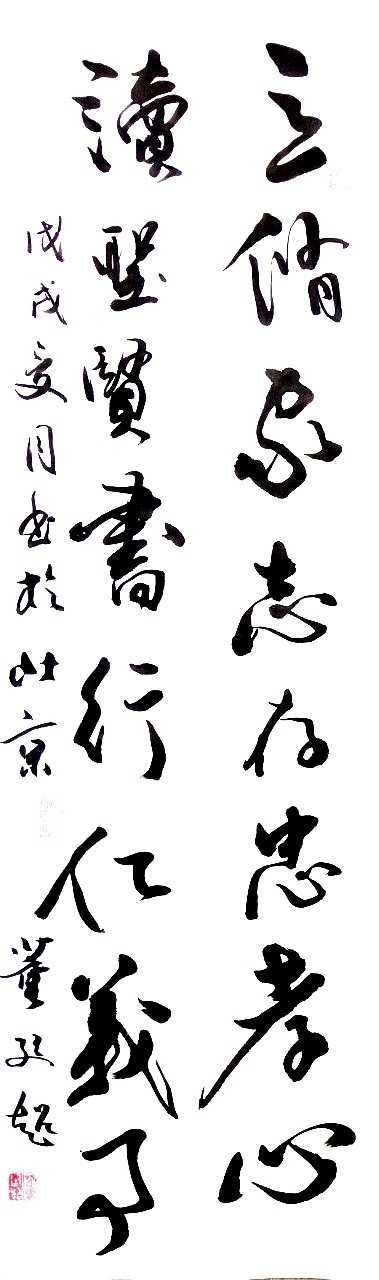 立脩家志存忠孝心
讀聖賢書行仁義事
戊戌夏月書於北京
董